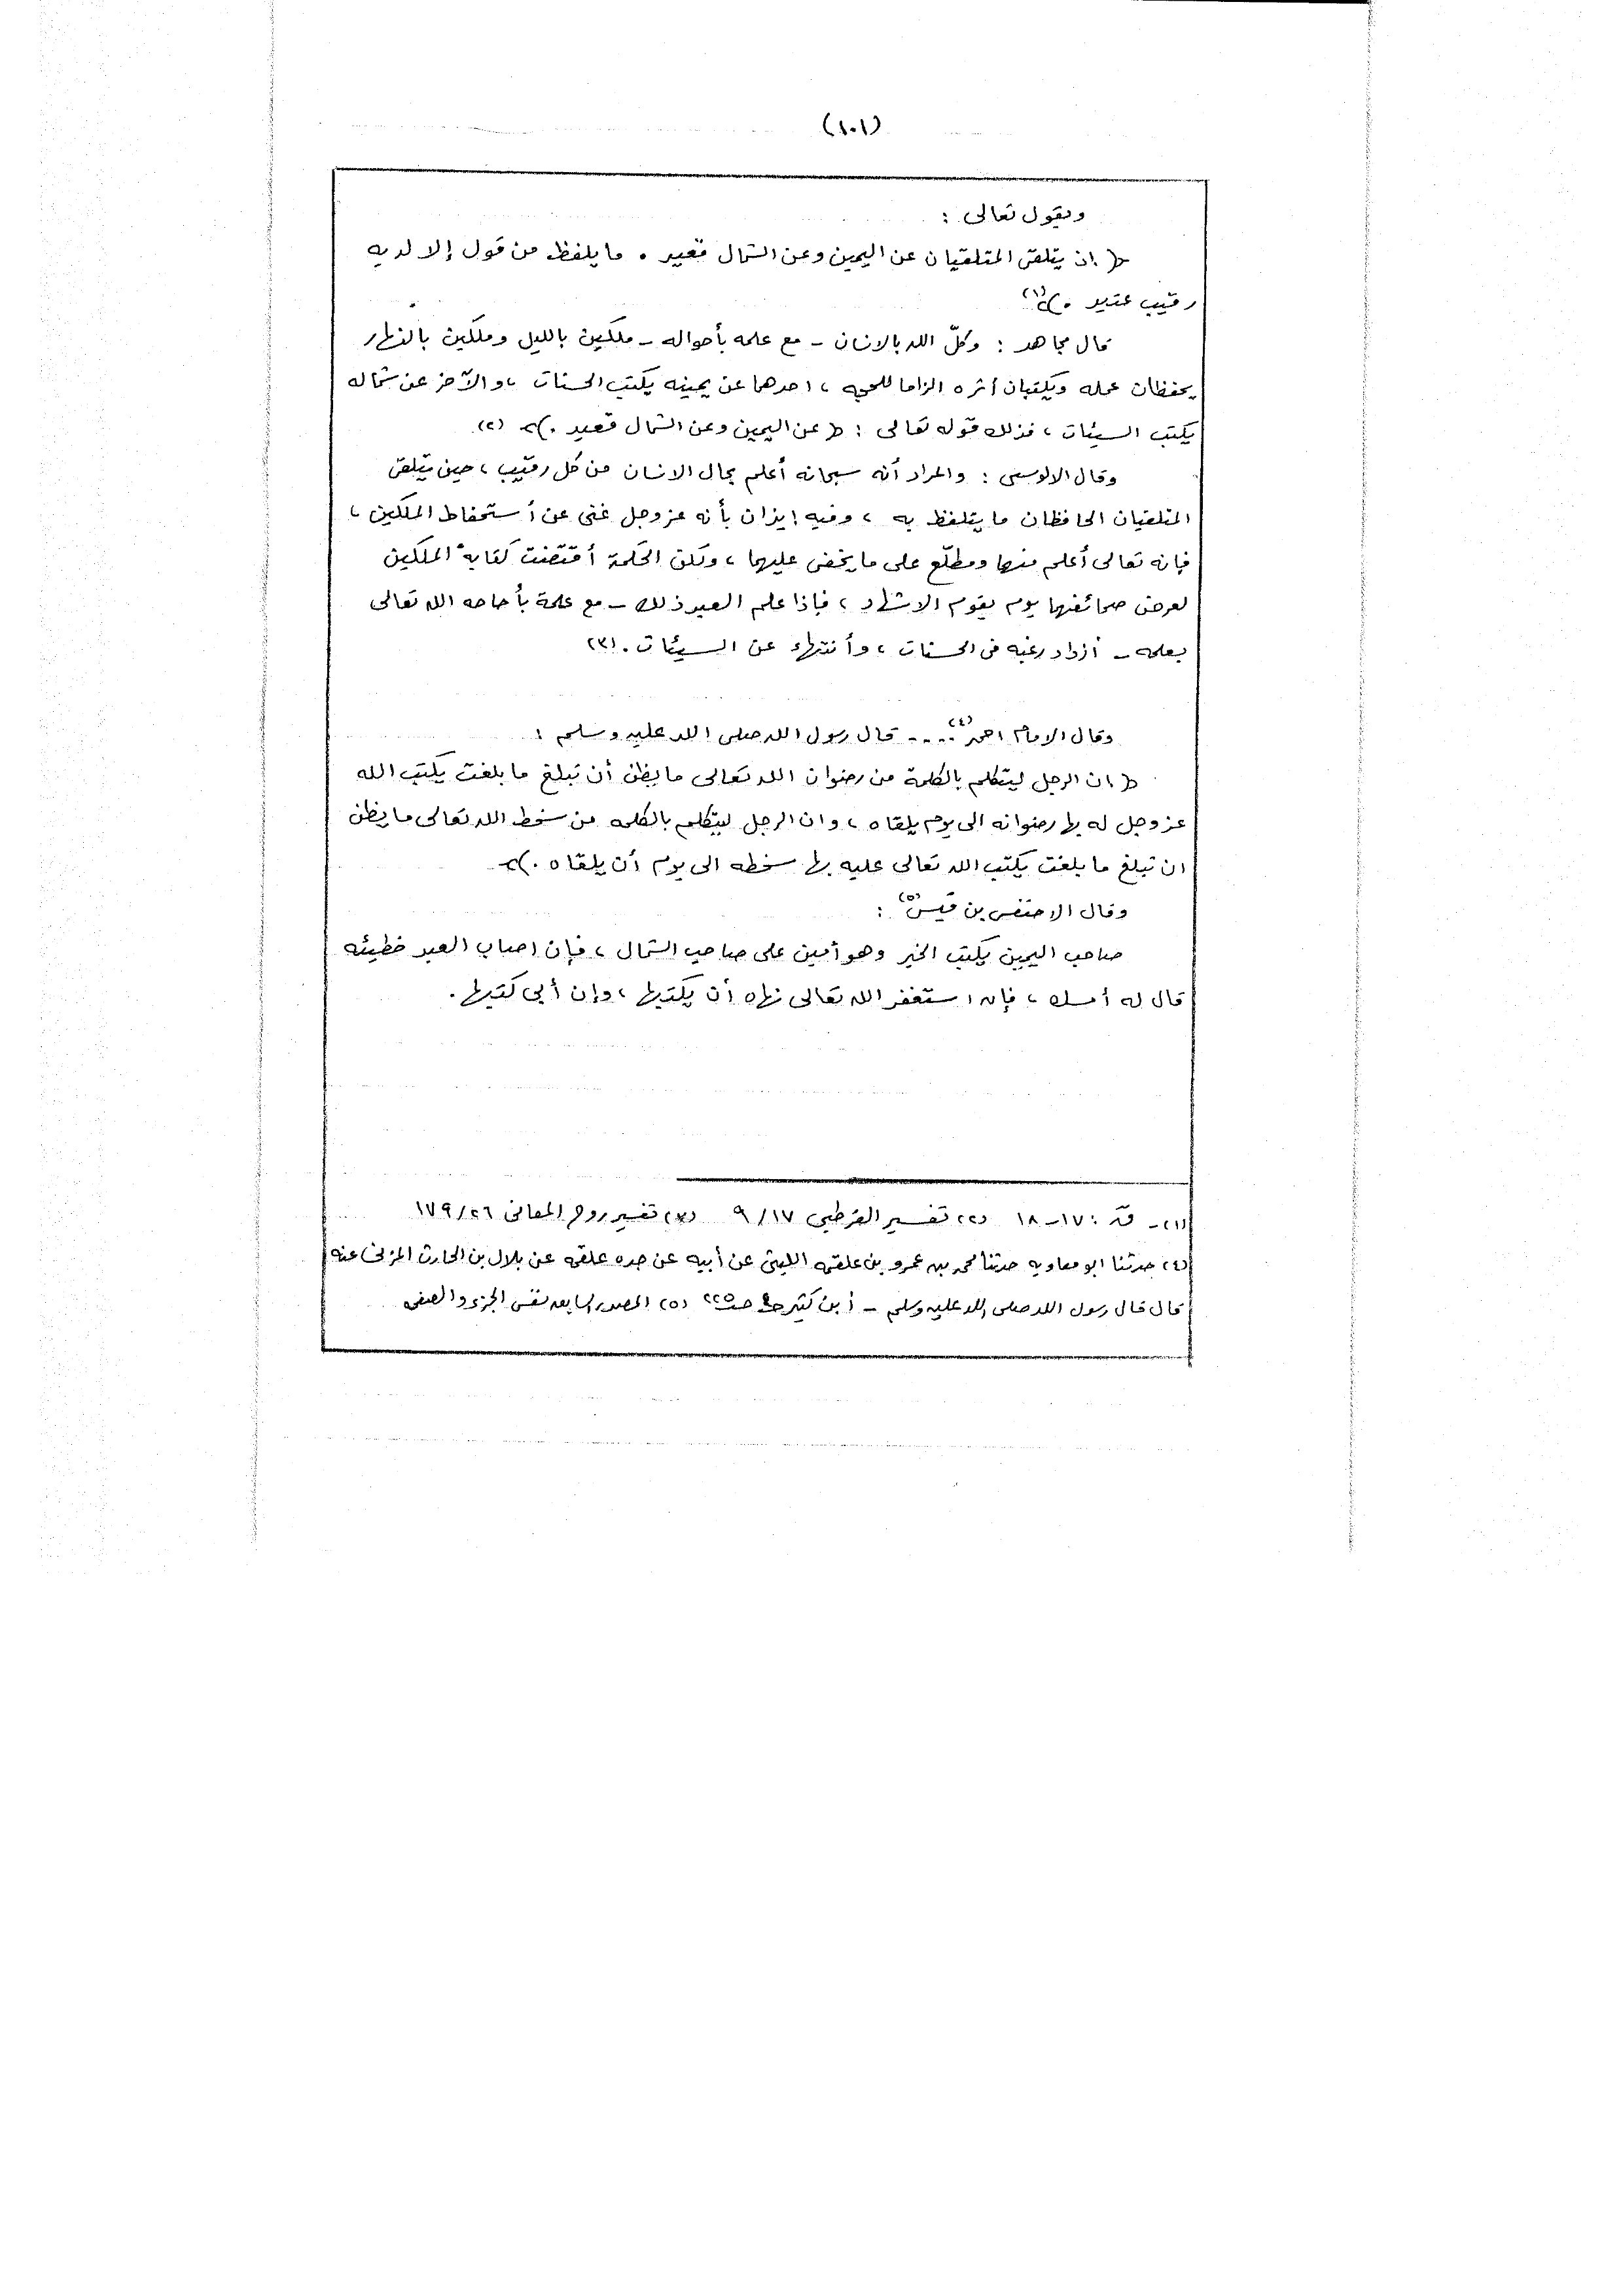 (١٠١)
ويقول تعالى :
﴿ إن يتلقى المتلقيان عن اليمين وعن الشمال قعيد . ما يلفظ من قول إلا لديه
رقيب عتيد . ﴾(١)
قال مجاهد : وكلّ الله بالانسان - مع علمه بأحواله - ملكين بالليل وملكين بالنهار
يحفظان عمله ويكتبان أثره الزاما للحجه ، احدهما عن يمينه يكتب الحسنات ، والآخر عن شماله
يكتب السيئات ، فذلك قوله تعالى : ﴿ عن اليمين وعن الشمال قعيد . ﴾ (٢)
وقال الالوسى : والمراد أنه سبحانه أعلم بحال الانسان من كل رقيب ، حين يتلقى
المتلقيان الحافظان ما يتلفظ به ، وفيه إيذان بأنه عز وجل غنى عن أستحفاظ الملكين ،
فإنه تعالى أعلم منهما ومطلّع على ما يخفى عليهما ، ولكن الحكمة أقتضت كتابة الملكين
لعرض صحائفهما يوم يقوم الاشهاد ، فإذا علم العبد ذلك - مع علمة بأحاطه الله تعالى
بعلمه - أزداد رغبه فى الحسنات ، وأنتهاء عن السيئات . (٣)
وقال الامام احمد(٤) .... قال رسول الله صلى الله عليه وسلم :
﴿ ان الرجل ليتكلم بالكلمة من رضوان الله تعالى ما يظن أن تبلغ ما بلغت يكتب الله
عز وجل له بها رضوانه الى يوم يلقاه ، وان الرجل ليتكلم بالكلمه من سخط الله تعالى ما يظن
ان تبلغ ما بلغت يكتب الله تعالى عليه بها سخطه الى يوم أن يلقاه . ﴾
وقال الاحنفس بن قيس(٥) :
صاحب اليمين يكتب الخير وهو أمين على صاحب الشمال ، فإن اصاب العبد خطيئه
قال له أمسك ، فإن استغفر الله تعالى نهاه أن يكتبها ، وإن أبى كتبها .
(١) - ق : ١٧ - ١٨ (٢) تفسير القرطبى ١٧ / ٩ (٣) تفسير روح المعانى ٢٦ / ١٧٩
(٤) حدثنا ابو معاويه حدثنا محمد بن عمرو بن علقمه الليثى عن أبيه عن جده علقمه عن بلال بن الحارث المزنى عنه
قال قال رسول الله صلى الله عليه وسلم - أبن كثير ج٤ ص ٢٢٥ (٥) المصدر السابق نفس الجزء والصفحه